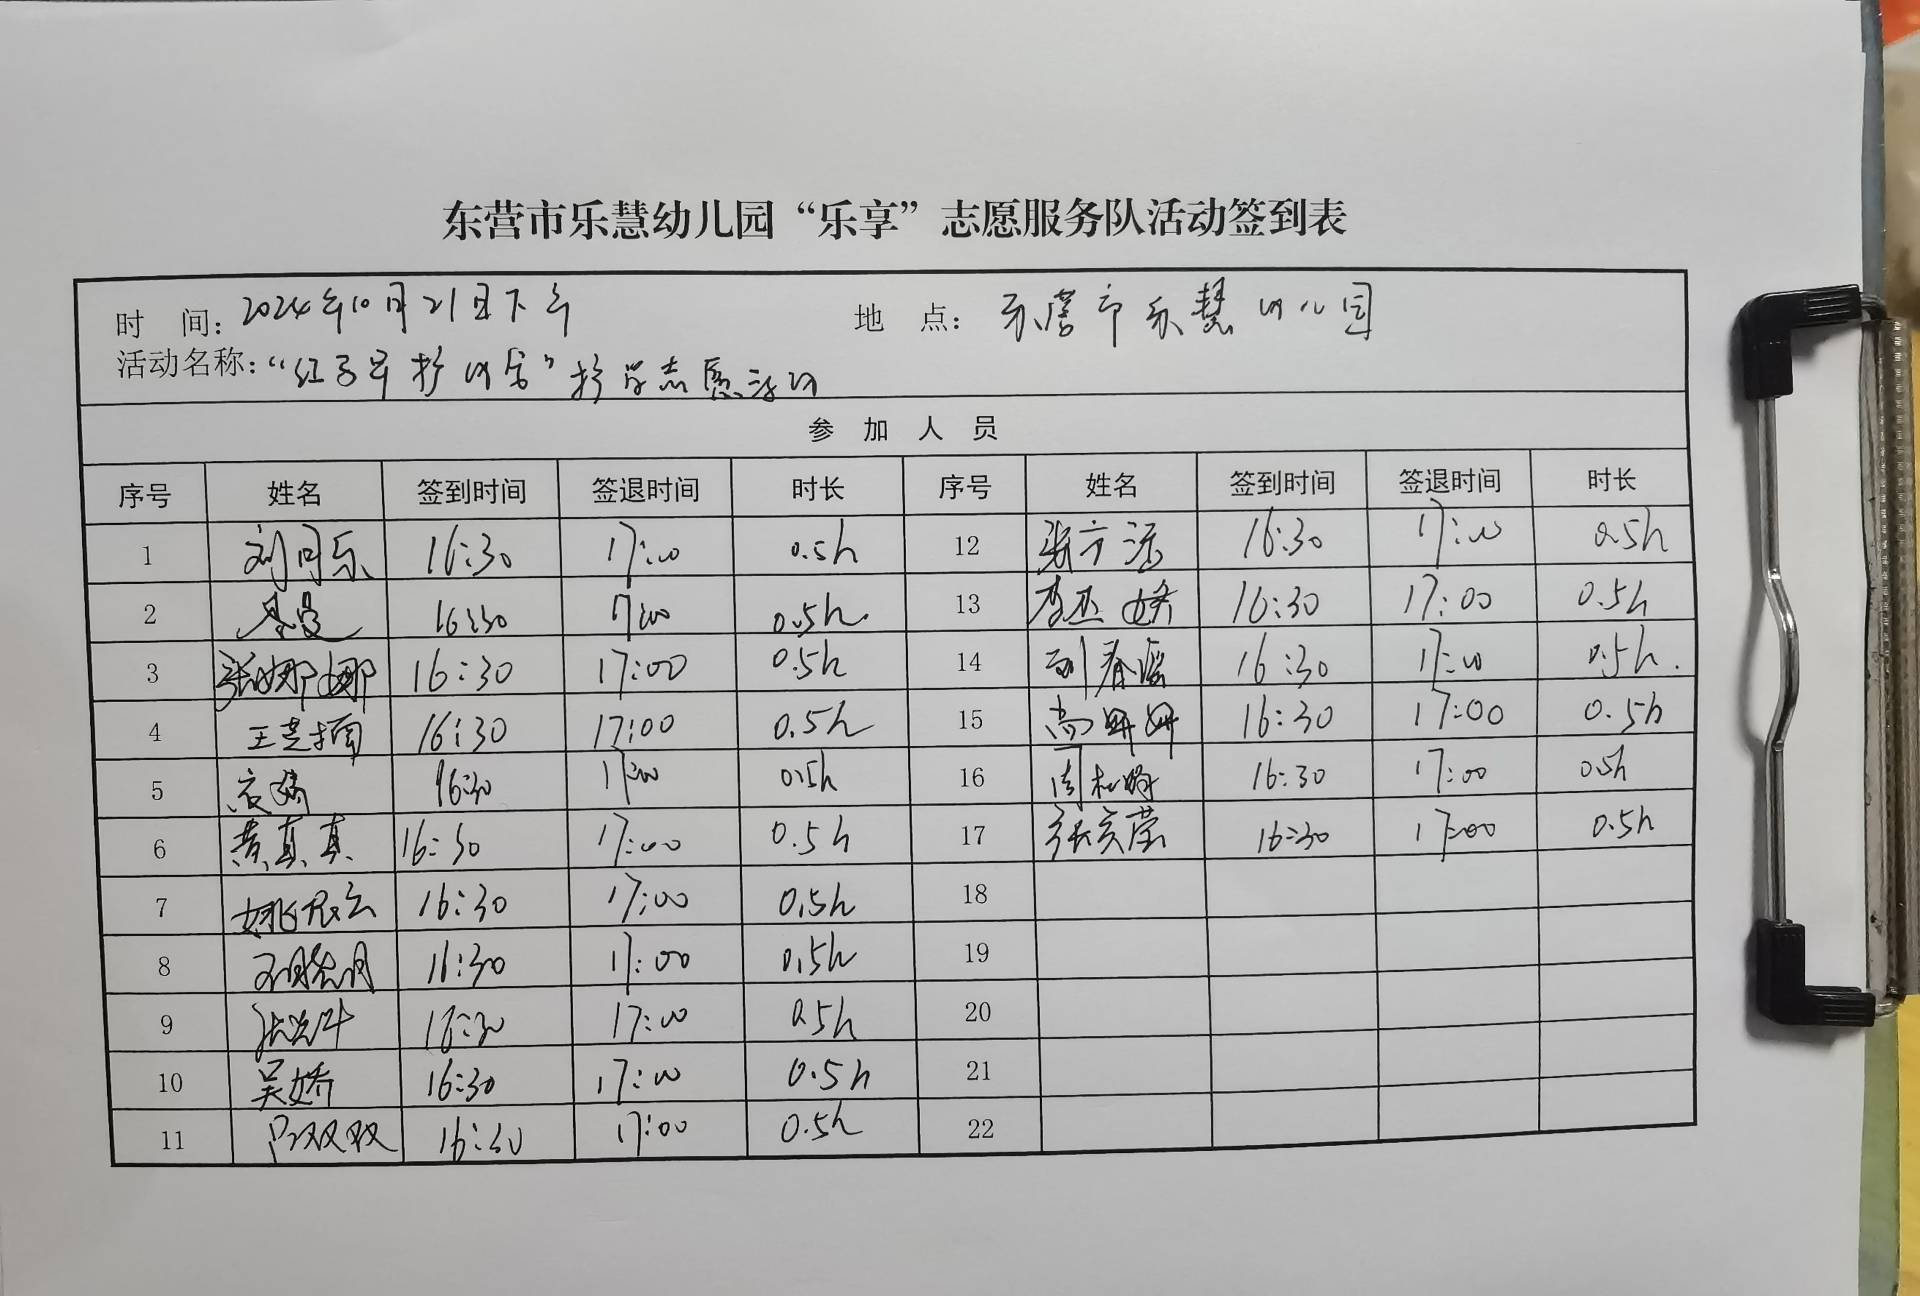 东营市乐慧幼儿园“乐享”志愿服务队活动签到表
时 间：2024年10月21日下午 地 点：东营市乐慧幼儿园
活动名称：“红 护 ” 志愿活动
参 加 人 员
序号 姓名 签到时间 签退时间 时长 序号 姓名 签到时间 签退时间 时长
1 刘同乐 16:30 17:00 0.5h 12 16:30 17:00 0.5h
2 16:30 17:00 0.5h. 13 16:30 17:00 0.5h
3 张娜娜 16:30 17:00 0.5h 14 刘春 16:30 17:00 0.5h.
4 16:30 17:00 0.5h 15 尚妍妍 16:30 17:00 0.5h
5 16:30 17:00 0.5h 16 16:30 17:00 0.5h
6 黄真真 16:30 17:00 0.5h 17 16:30 17:00 0.5h
7 16:30 17:00 0.5h 18
8 16:30 17:00 0.5h 19
9 16:30 17:00 0.5h 20
10 吴娇 16:30 17:00 0.5h 21
11 双双 16:30 17:00 0.5h 22